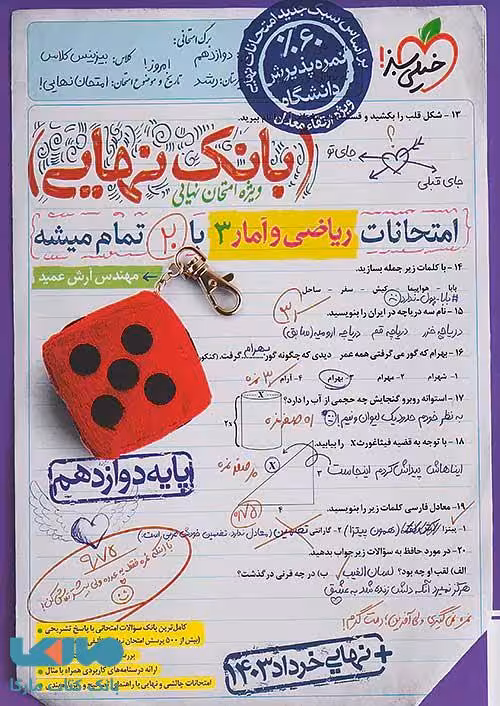 برگ امتحانی:
دوازدهم
کلاس: بیزینس کلاس
امروز!
تاریخ و موضوع امتحان: امتحان نهایی!
براساس سبک جدید امتحانات نهایی
%۶۰
نمره پذیرش
دانشگاه
ویژه ارتقاء معدل
خیلی سبز!
۱۳- شکل قلب را بکشید و
ببرید.
؟
جای تو
جای قبلی
(بانک نهایی)
ویژه امتحان نهایی
امتحانات ریاضی و آمار ۳ با ۲۰ تمام میشه
مهندس آرش عمید
۱۴- با کلمات زیر جمله بسازید.
بابا - هواپیما - کیش - سفر - ساحل
# بابا_پول_نداره
۱۵- نام سه دریاچه در ایران را بنویسید.
دریاچه خزر دریاچه قم دریاچه ارومیه (سابق)
۱۶- بهرام که گور می‌گرفتی همه عمر دیدی که چگونه گور بهرام گرفت. (کنکور
۱- شهرام ۲- مهرام ۳- بهرام ۴- آرام
۱۷- استوانه روبرو گنجایش چه حجمی از آب را دارد؟
به نظر خودم حدود یک لیوان و نیم!
X
2x
۱۸- با توجه به قضیه فیثاغورث X را بیابید.
ایناهاش پیداش کردم اینجاست
X
۳
۴
۱۹- معادل فارسی کلمات زیر را بنویسید.
۱- پیتزا (همون پیتزا) ۲- گارانتی تضمین (معادل نداره. تضمین خودش عربی است.)
۲۰- در مورد حافظ به سؤالات زیر جواب بدهید.
الف) لقب او چه بود؟ لسان الغیب ب) در چه قرنی درگذشت؟
هرگز نمیرد آنکه دلش زنده شد به عشق
پایه دوازدهم
کامل‌ترین بانک سؤالات امتحانی با پاسخ تشریحی
(بیش از ۵۰۰ پرسش امتحان نهایی
ارائه درسنامه‌های کاربردی همراه با مثال
امتحانات چالشی و نهایی با راهنمای
+ نهایی خرداد ۱۴۰۳
مارکا
بانک کتاب مارکا